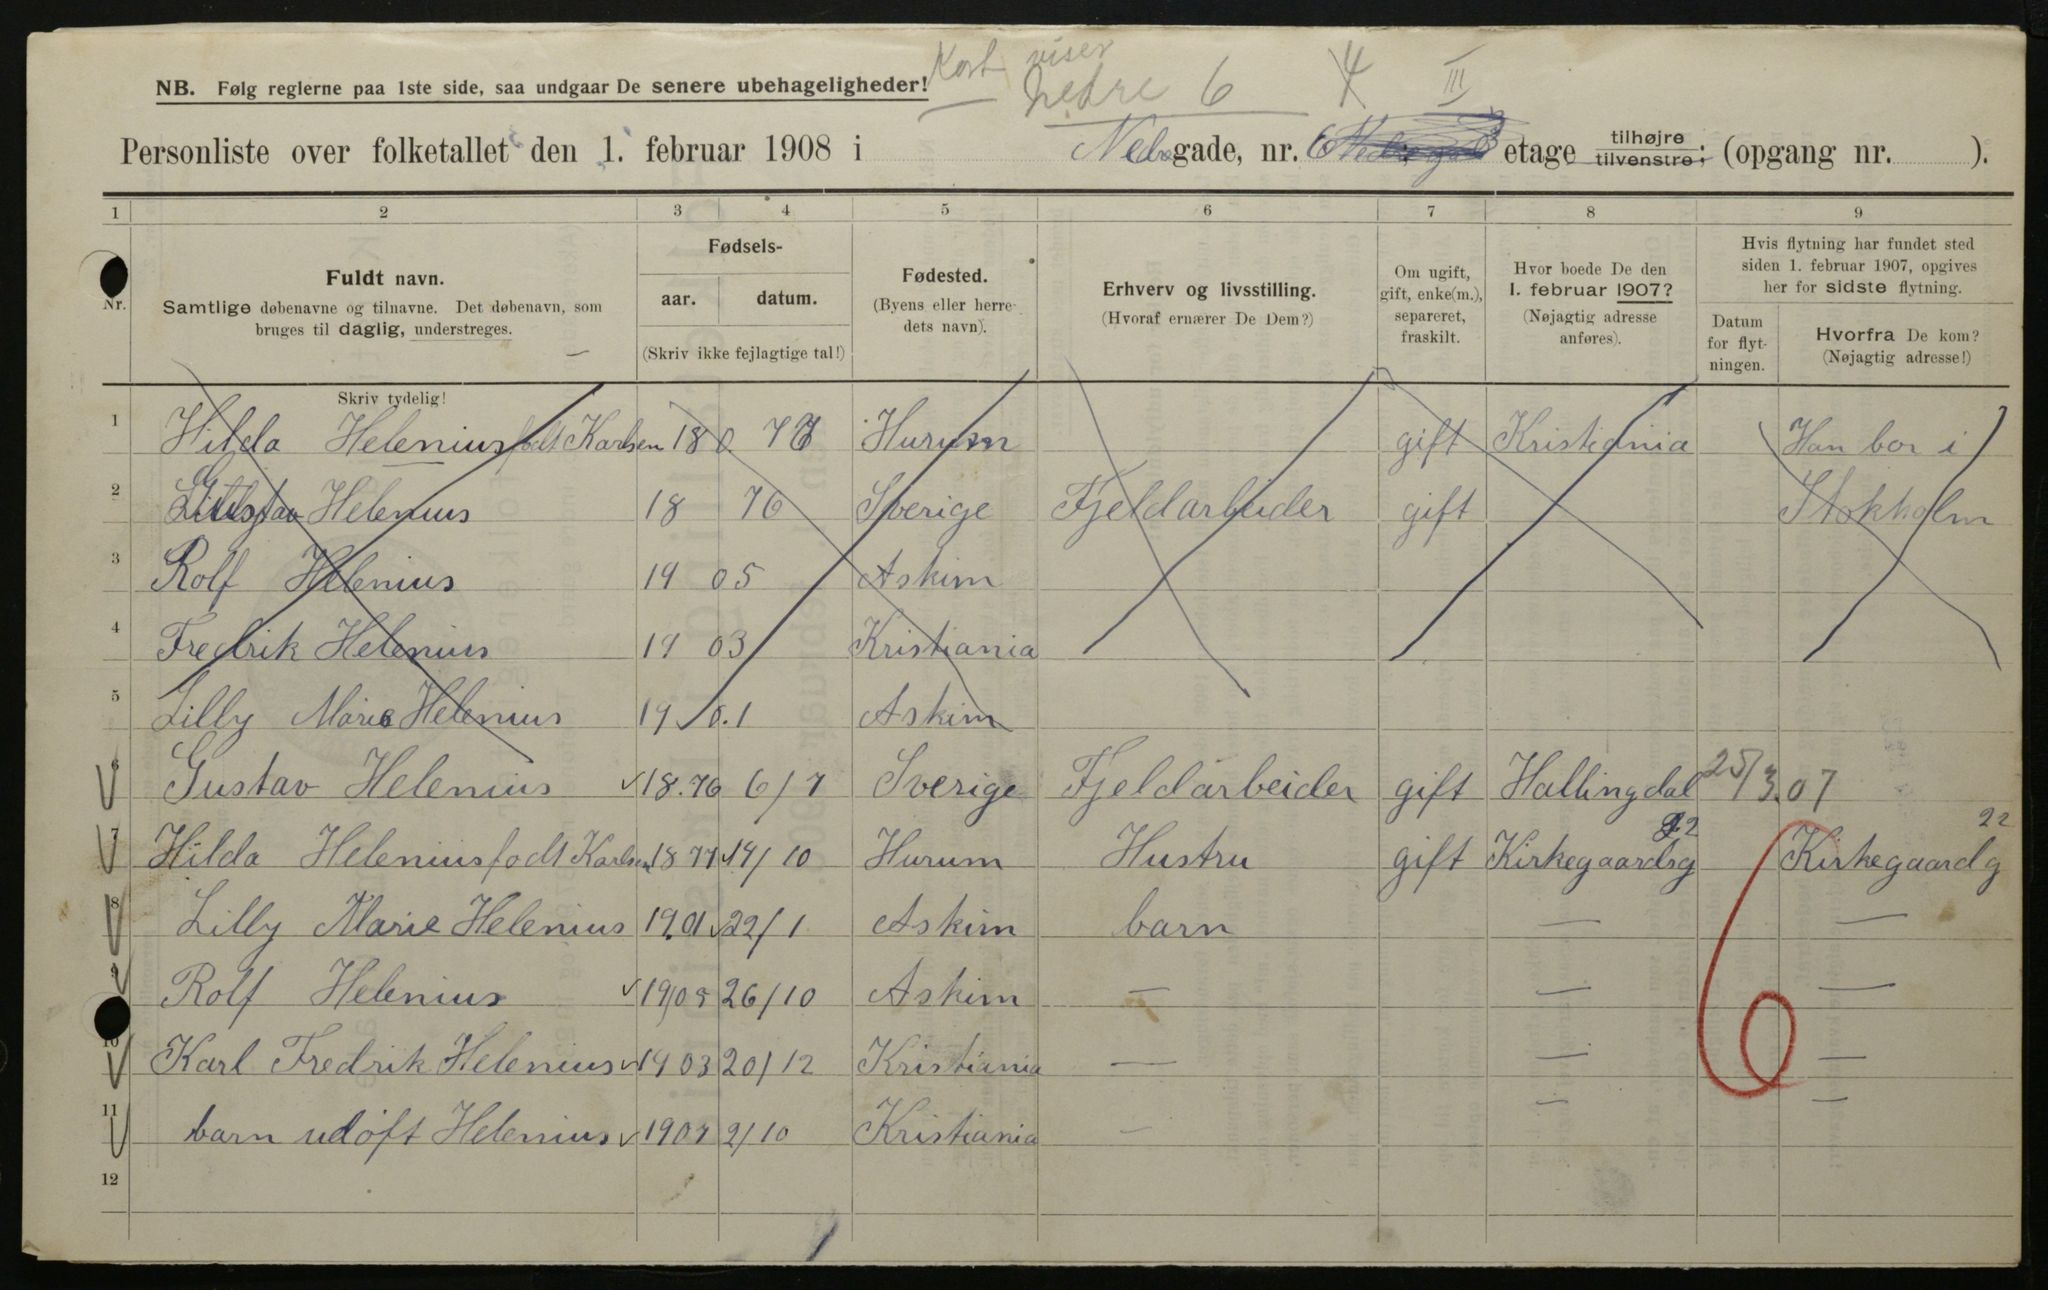 Kort viser
Nedre 6 4 III
NB. Følg reglerne paa 1ste side, saa undgaar De senere ubehageligheder!
Personliste over folketallet den 1. februar 1908 i Nedregade, nr. 6 etage tilhøjre tilvenstre; (opgang nr. ).
1 2 3 4 5 6 7 8 9
Nr.
Fuldt navn.
Samtlige døbenavne og tilnavne. Det døbenavn, som
bruges til daglig, understreges.
Fødsels-
aar. datum.
(Skriv ikke fejlagtige tal!)
Fødested.
(Byens eller herre-
dets navn).
Erhverv og livsstilling.
(Hvoraf ernærer De Dem?)
Om ugift,
gift, enke(m.),
separeret,
fraskilt.
Hvor boede De den
1. februar 1907?
(Nøjagtig adresse
anføres).
Hvis flytning har fundet sted
siden 1. februar 1907, opgives
her for sidste flytning.
Datum
for flyt-
ningen.
Hvorfra De kom?
(Nøjagtig adresse!)
Skriv tydelig!
1 Hilda Helenius født Karlsen 18 Hurum gift Kristiania Han bor i
2 Gustav Helenius 18 76 Sverige Fjeldarbeider gift Stokholm
3 Rolf Helenius 19 05 Askim
4 Fredrik Helenius 19 03 Kristiania
5 Lilly Marie Helenius 19 0.1 Askim
6 Gustav Helenius 18.76 6/7 Sverige Fjeldarbeider gift Hallingdal 25/3.07
7 Hilda Helenius fodt Karlsen 1877 14/10 Hurum Hustru gift Kirkegaardsg 22 Kirkegaardg 22
8 Lilly Marie Helenius 1901 22/1 Askim barn — —
9 Rolf Helenius 1905 26/10 Askim — — —
10 Karl Fredrik Helenius 1903 20/12 Kristiania — — —
11 barn udøft Helenius 1907 2/10 Kristiania — — —
12
6